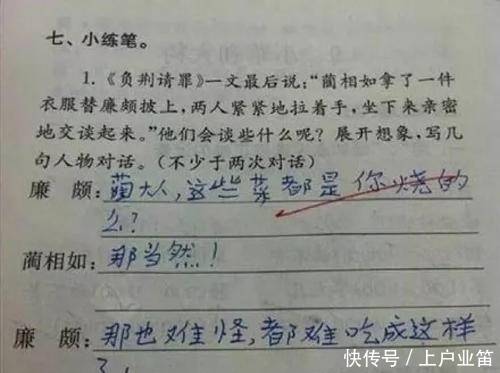 七、小练笔。
1.《负荆请罪》一文最后说:“蔺相如拿了一件
衣服替廉颇披上,两人紧紧地拉着手,坐下来亲密
地交谈起来。”他们会谈些什么呢?展开想象,写几
句人物对话。(不少于两次对话)
廉 颇:蔺大人,这些菜都是你烧的
么?
蔺相如:那当然!
廉 颇:那也难怪,都难吃成这样
了!
快传号/上户业笛